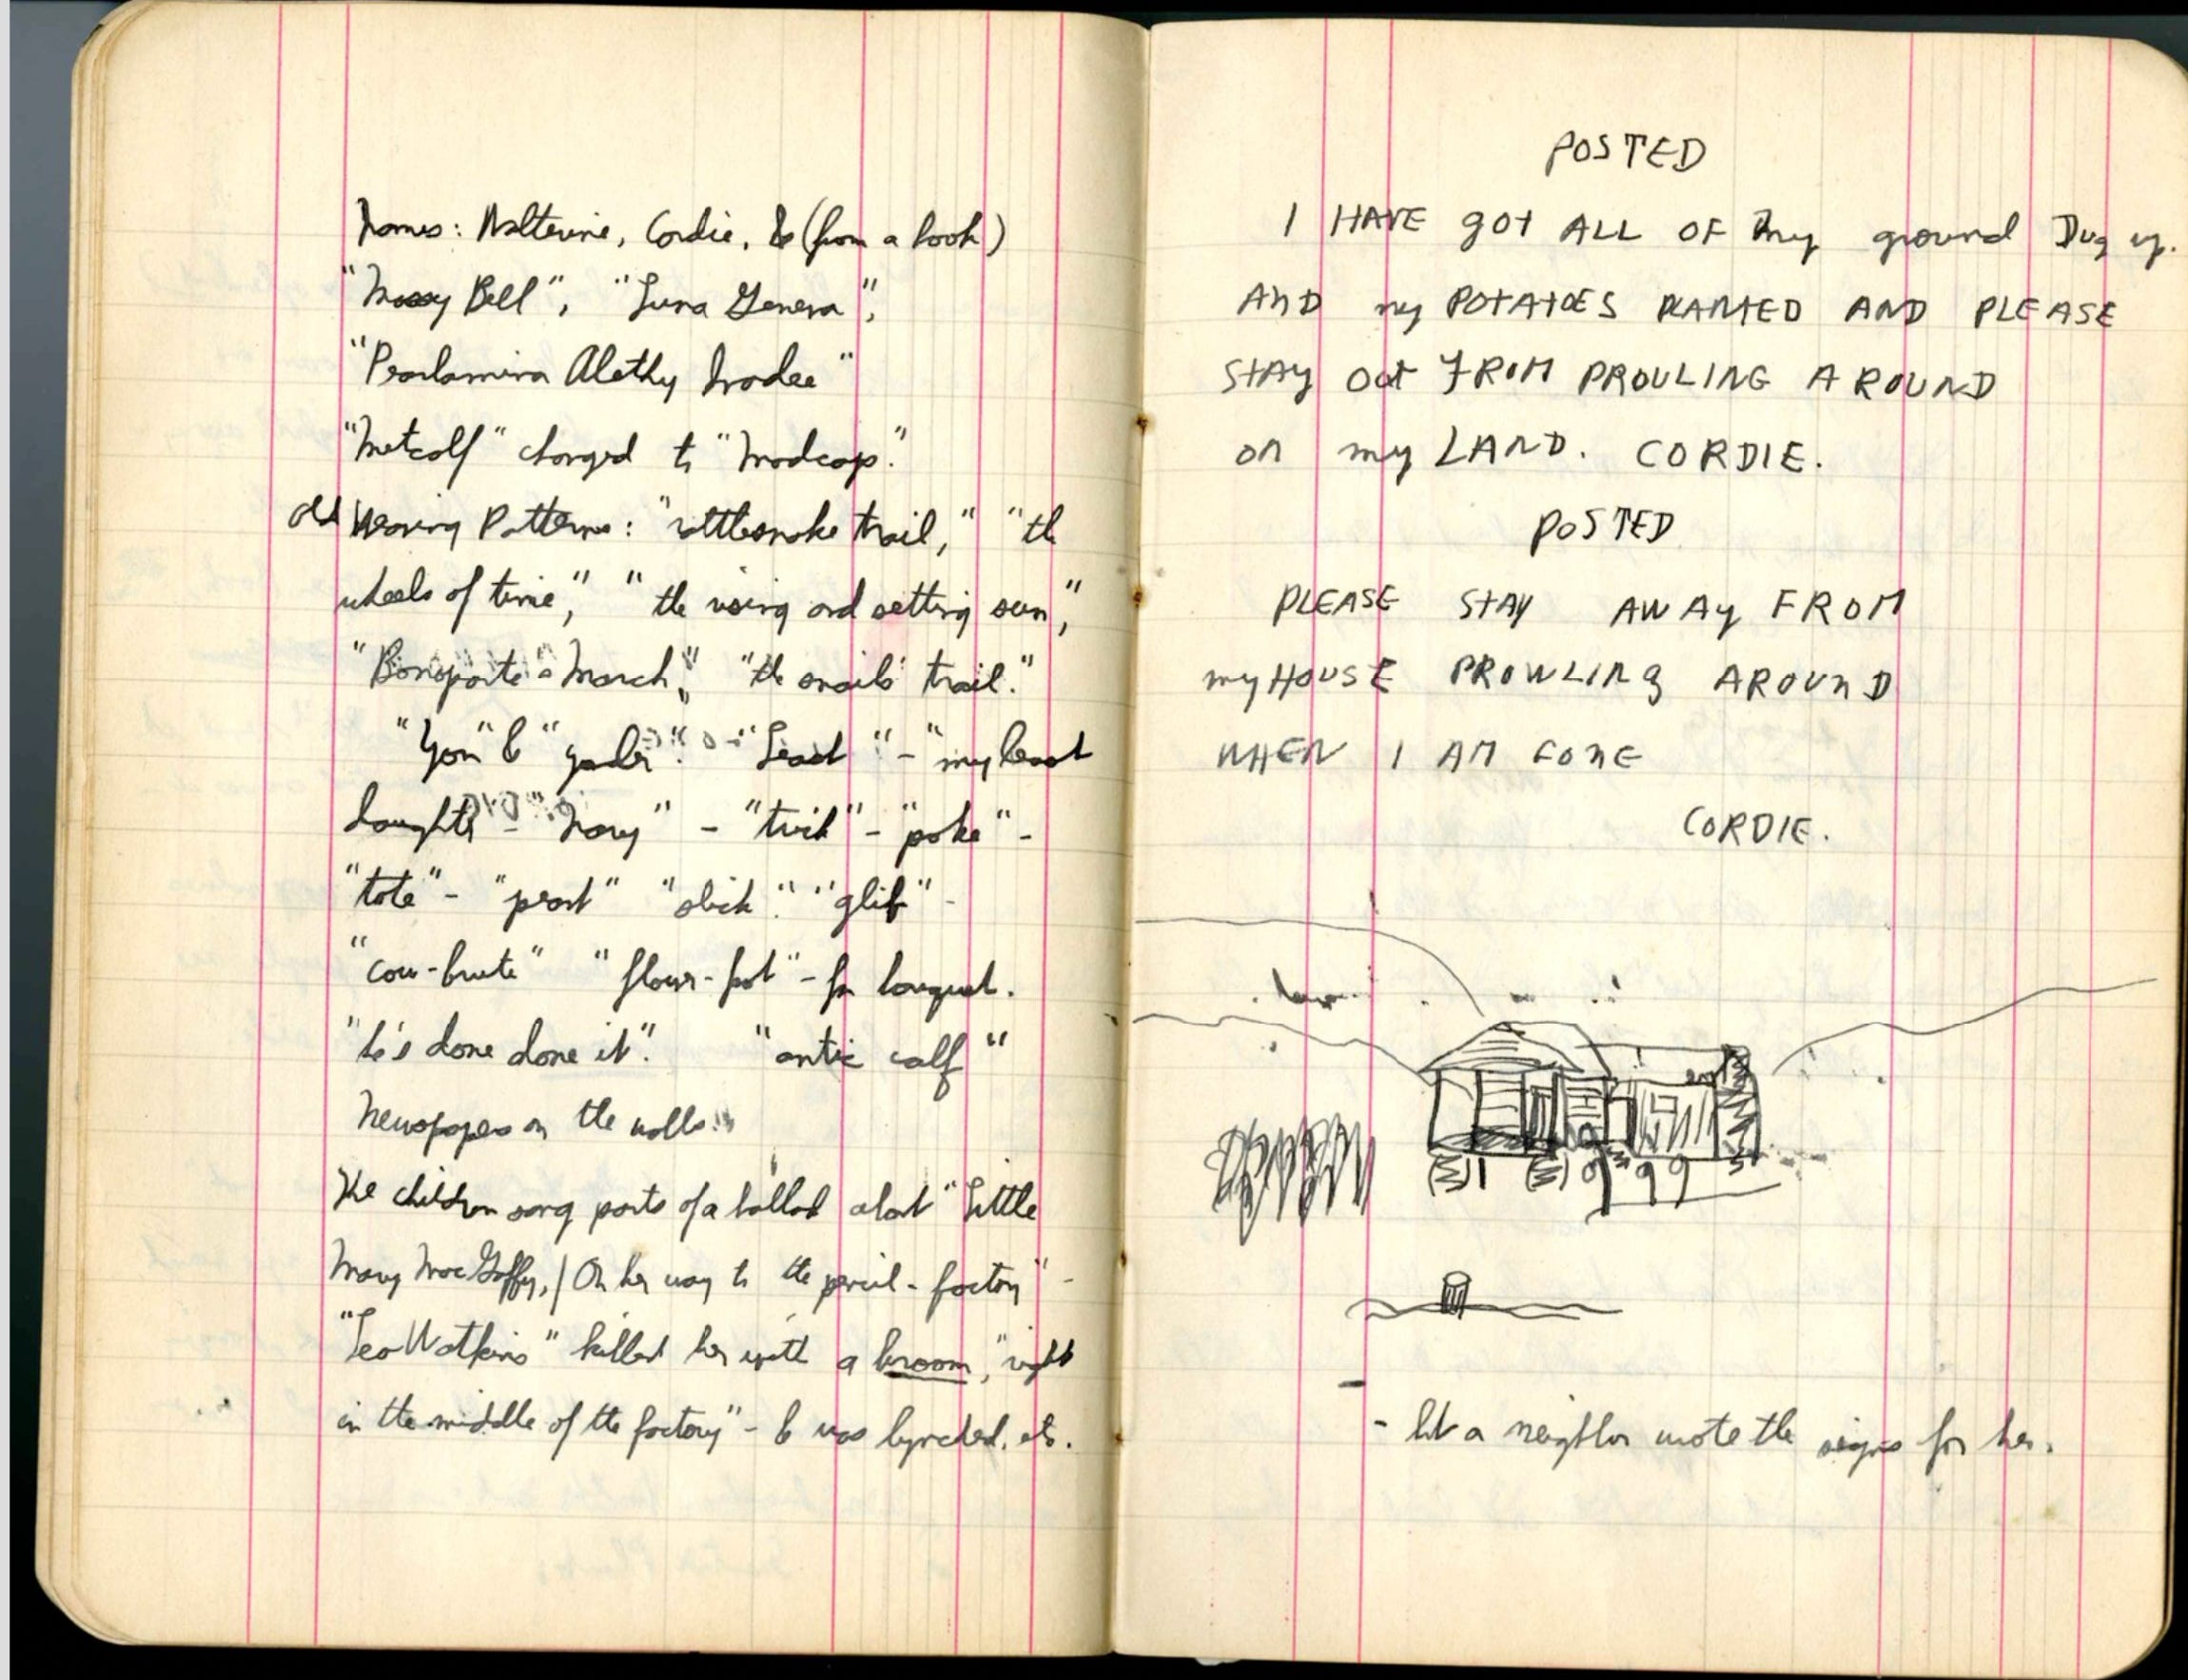 Names: Walterine, Cordie, & (from a book)
"Mossy Bell", "Luna Geneva",
"Pearlamina Alethy Madee"
"Metcalf" changed to "Madcap."
old Weaving Patterns: "rattlesnake trail," "the
wheels of time," "the rising and setting sun,"
"Bonaparte's March," "the snail's trail."
"Yon" & "yonder". "Least" – "my least
daughter" – "Nary" – "twict" – "poke" –
"tote" – "peart" "slick". "glib" –
"cow-brute" "flower-pot" – for bouquet.
"he's done done it". "antic calf"
Newspapers on the walls
The children sang parts of a ballad about "Little
Mary MacGaffy, / On her way to the pencil-factory" –
"Leo Watkins" killed her with a broom, "right
in the middle of the factory" – & was lynched, etc.
POSTED
I HAVE gOt ALL OF my ground Dug up.
AnD my POTATOES PLANTED AND PLEASE
STAy Out FROM PROULING AROUND
on my LAND. CORDIE.
POSTED
PLEASE STAy AWAy FROM
my HOUSE PROWLINg AROUnD
WHEN I AM GONE
CORDIE.
– but a neighbor wrote the signs for her.